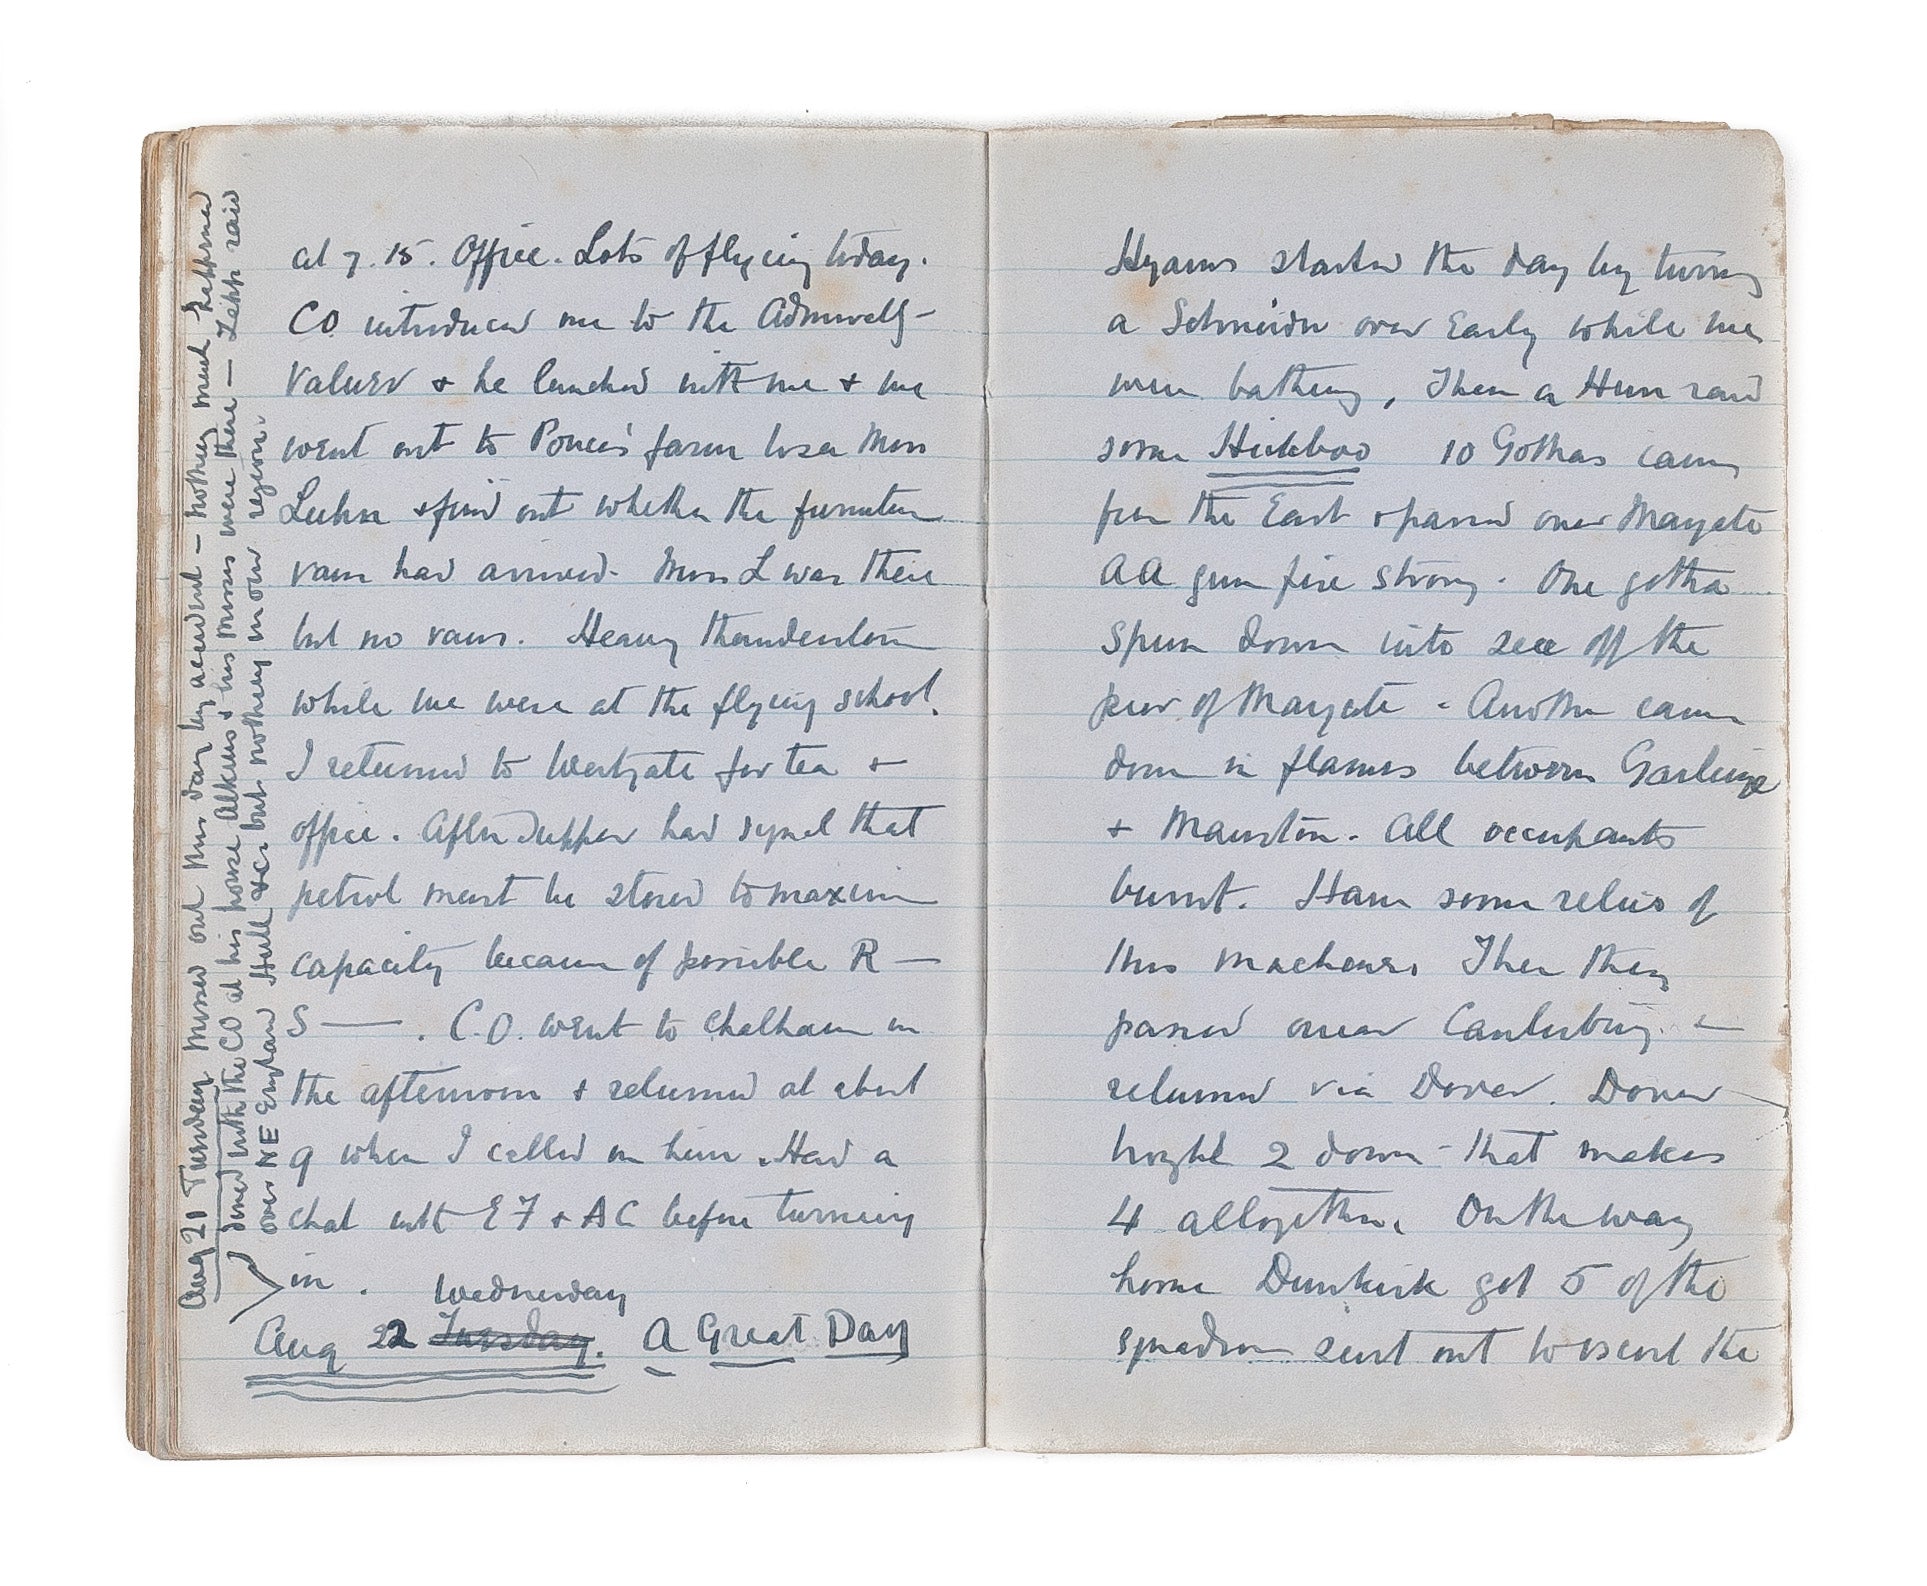 at 7.15. Office. Lots of flying today.
CO introduced me to the Admiralty
Valuer + he lunched with me + we
went out to Ponce's farm to see Miss
+ find out whether the furniture
van had arrived. Miss L was there
but no vans. Heavy thunderstorm
while we were at the flying school.
I returned to Westgate for tea +
office. After supper had signal that
petrol must be stored to maximum
capacity because of possible R —
S — . C.O. went to Chatham in
the afternoon + returned at about
9 when I called on him. Had a
chat with EF + AC before turning
in.
Wednesday
Aug 22 Tuesday. A Great Day
Aug 21 Tuesday Missed out this day by accident - nothing much happened
dined with the CO at his house + his missis were there - Zepp raid
over NE England Hull &c but nothing in our region.
Hyams started the day by turning
a Schneider over Early while we
were bathing, Then a Hun raid
some Hickboo 10 Gothas came
from the East + passed over Margate
AA gun fire strong. One gotha
spun down into sea off the
pier of Margate - Another came
down in flames between Garlinge
+ Manston. All occupants
burnt. Have some relics of
this machine. Then they
passed over Canterbury +
returned via Dover. Dover
brought 2 down - that makes
4 altogether. On the way
home Dunkirk got 5 of the
squadron sent out to escort the